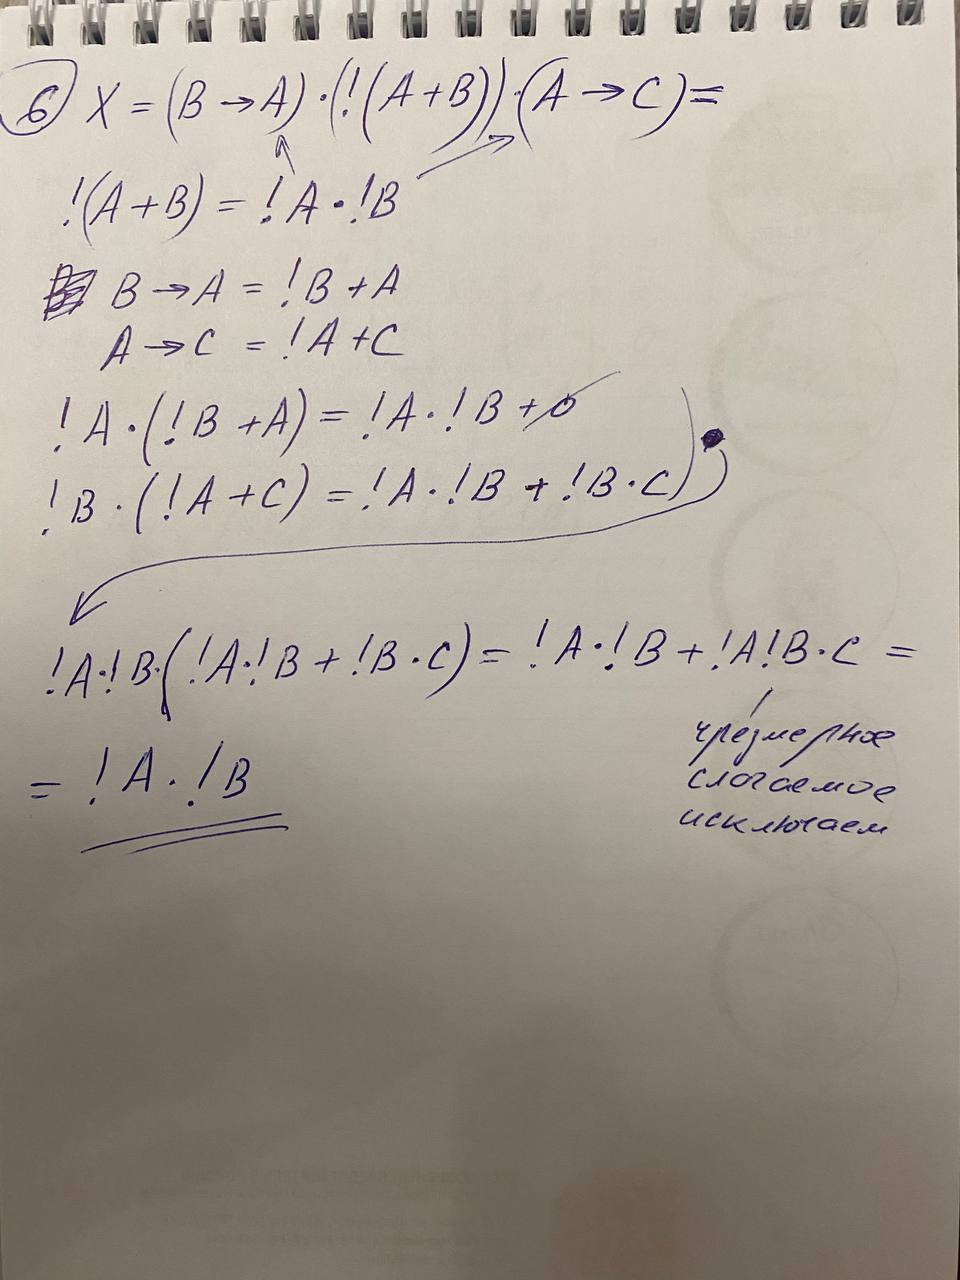 6 X = (B → A) · (!(A + B)) · (A → C) =
!(A + B) = !A · !B
B → A = !B + A
A → C = !A + C
!A · (!B + A) = !A · !B + 0
!B · (!A + C) = !A · !B + !B · C)
!A · !B · (!A · !B + !B · C) = !A · !B + !A !B · C =
= !A · !B
чрезмерное
слогаемое
исключаем